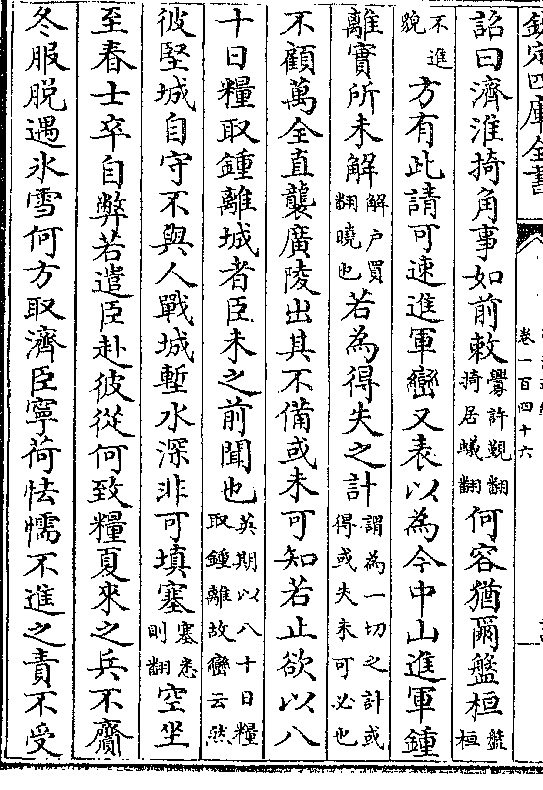 欽定四庫全書
卷一百四十六
詔曰濟淮掎角事如前敕釁許覲翻掎居蟻翻何容猶爾盤桓盤桓
不進貌方有此請可速進軍巒又表以為今中山進軍鍾
離實所未解解戶買翻曉也若為得失之計謂為一切之計或得或失未可必也
不顧萬全直襲廣陵出其不備或未可知若止欲以八
十日糧取鍾離城者臣未之前聞也英期以八十日糧取鍾離故巒云然
彼堅城自守不與人戰城塹水深非可填塞塞悉則翻空坐
至春士卒自弊若遣臣赴彼從何致糧夏來之兵不齎
冬服脫遇氷雪何方取濟臣寧荷怯懦不進之責不受